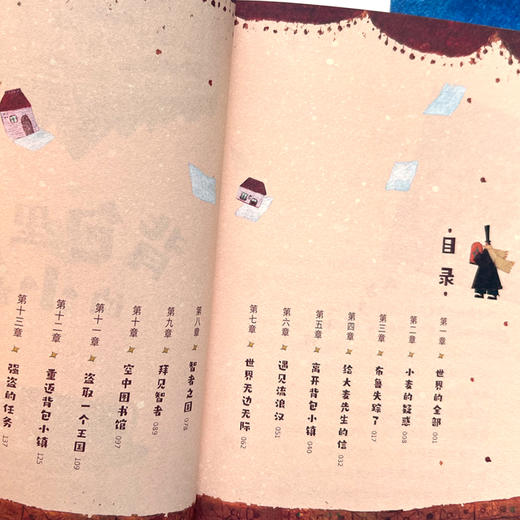 目录
第一章 世界的全部 001
第二章 小麦的疑惑 008
第三章 布鲁失踪了 017
第四章 给大麦先生的信 032
第五章 离开背包小镇 040
第六章 遇见流浪汉 051
第七章 世界无边无际 062
第八章 智者之国 078
第九章 拜见智者 089
第十章 空中图书馆 097
第十一章 盗取一个王国 109
第十二章 重返背包小镇 125
第十三章 强盗的任务 137